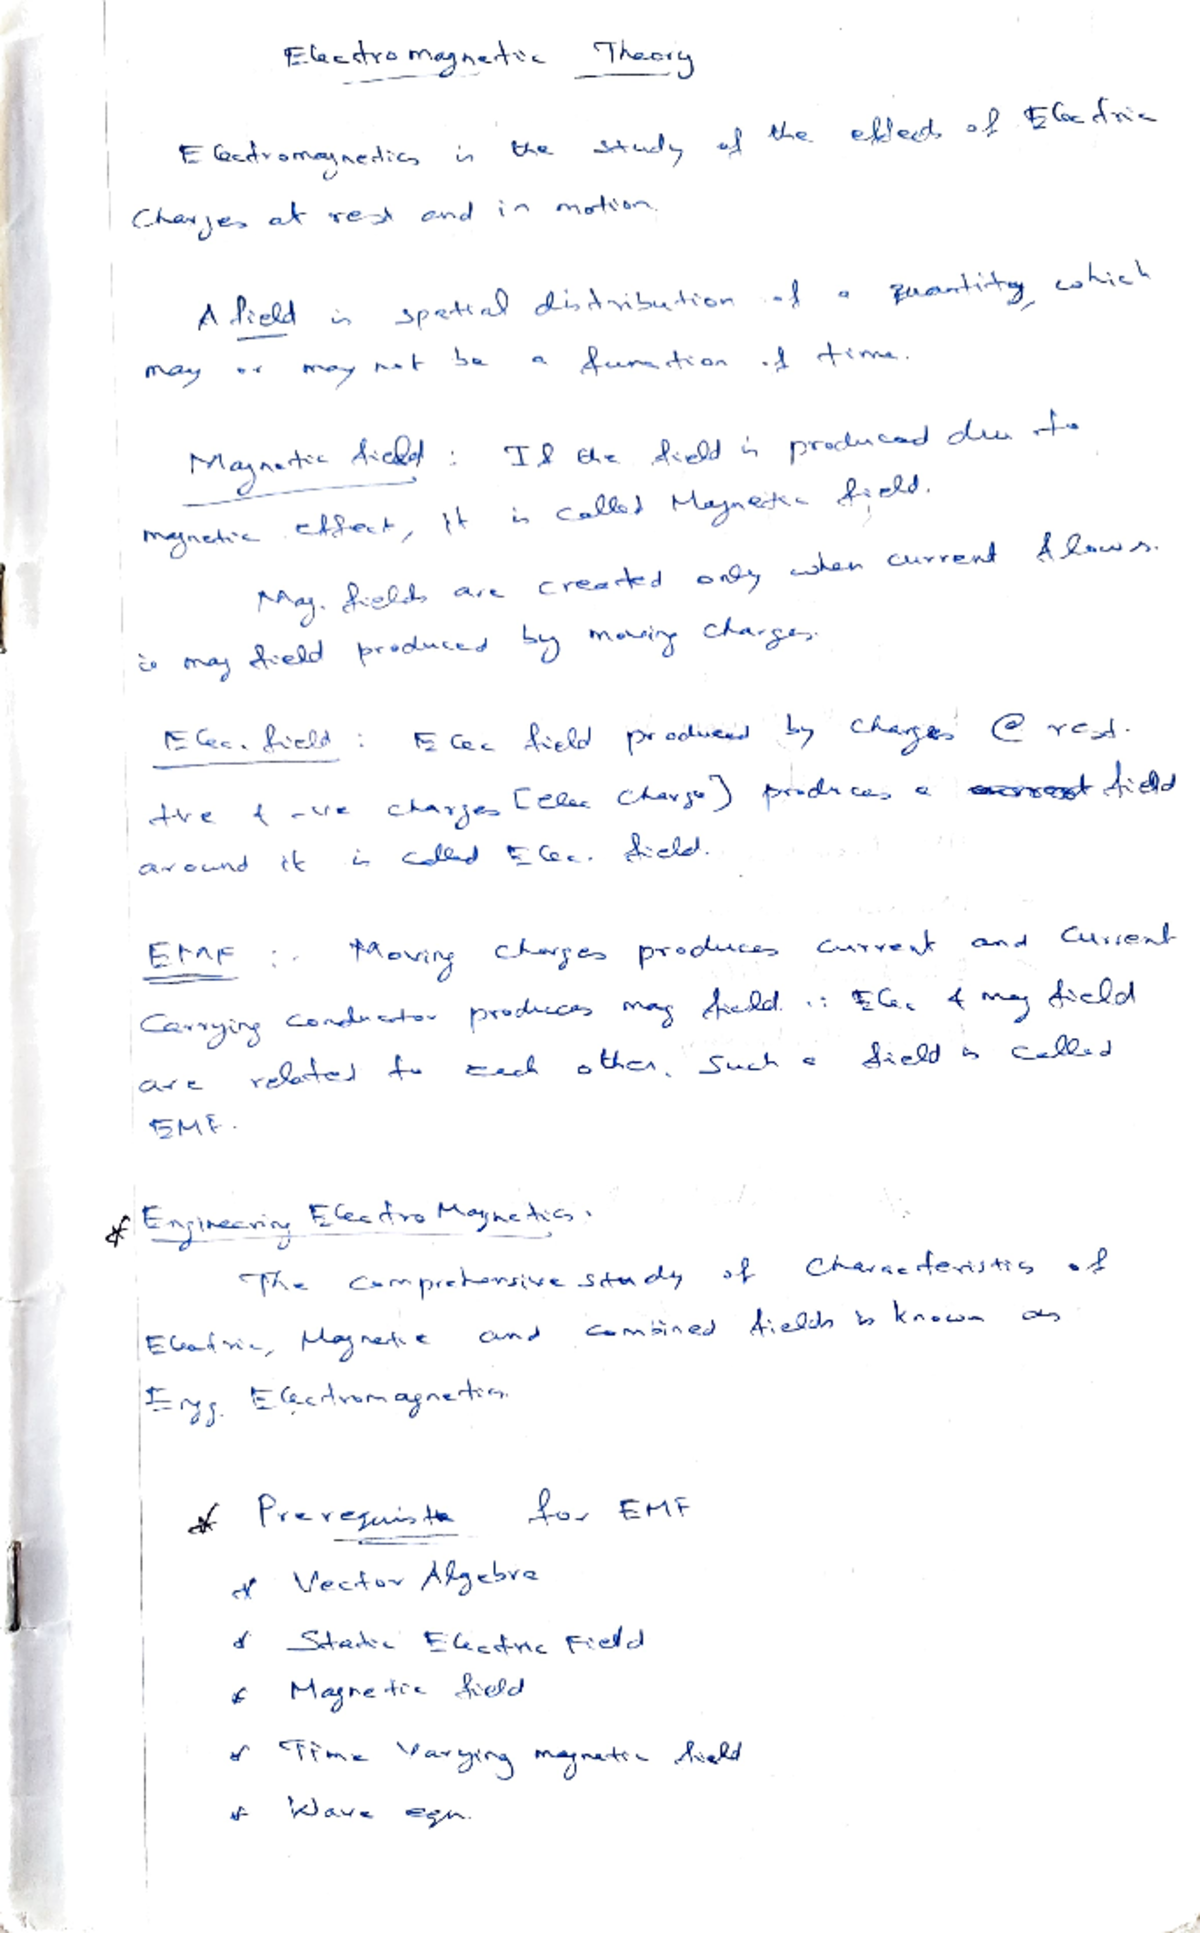 Electromagnetic Theory
Electromagnetics is the study of the effects of Electric
Charges at rest and in motion.
A field is spatial distribution of a quantity, which
may or may not be a function of time.
Magnetic field : If the field is produced due to
magnetic effect, it is called Magnetic field.
Mag. fields are created only when current flows.
ie mag field produced by moving charges.
Elec. field : Elec field produced by charges @ rest.
+ve & -ve charges [elec charge] produces a field
around it is called Elec. field.
EMF :- Moving charges produces current and current
Carrying conductor produces mag field. ∴ Elec & mag field
are related to each other. Such a field is called
EMF.
* Engineering Electro Magnetics.
The comprehensive study of characteristics of
Electric, Magnetic and combined fields is known as
Engg. Electromagnetics.
* Prerequisite for EMF
* Vector Algebra
* Static Electric Field
* Magnetic field
* Time Varying magnetic field
* Wave eqn.